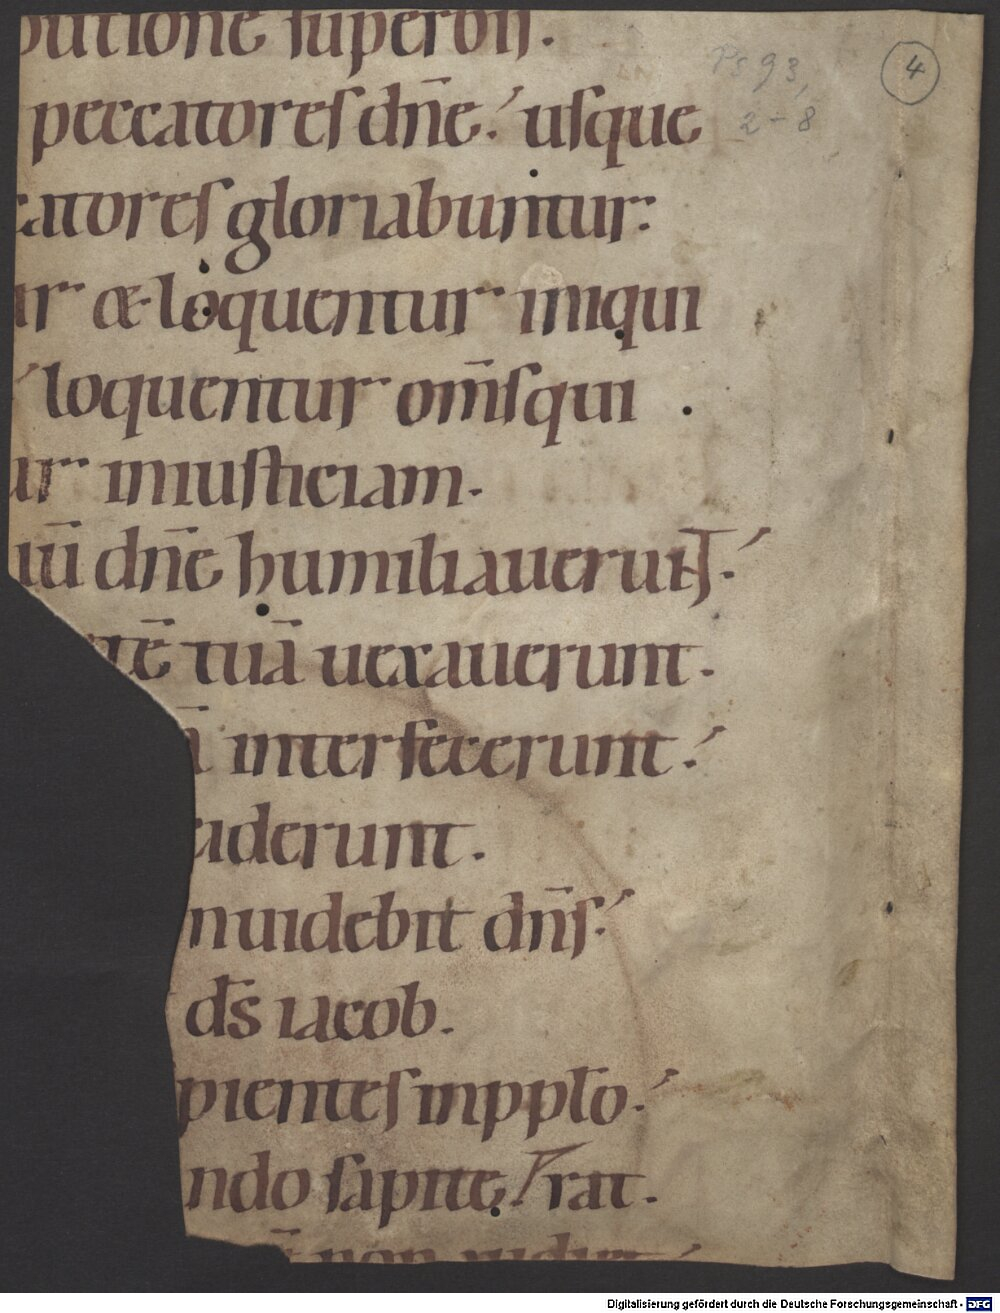 butione superbis.
Ps 93, 2-8
4
peccatores dn̄e: usque
catores gloriabuntur:
ur & loquentur iniqui
loquentur om̄s qui
ur iniusticiam.
uū dn̄e humiliaverunt:
tē tuā vexaverunt.
ā interfecerunt:
ciderunt.
n videbit dn̄s:
ds̄ iacob.
pientes in pplo:
ndo sapite.
rat.
non
Digitalisierung gefördert durch die Deutsche Forschungsgemeinschaft - DFG